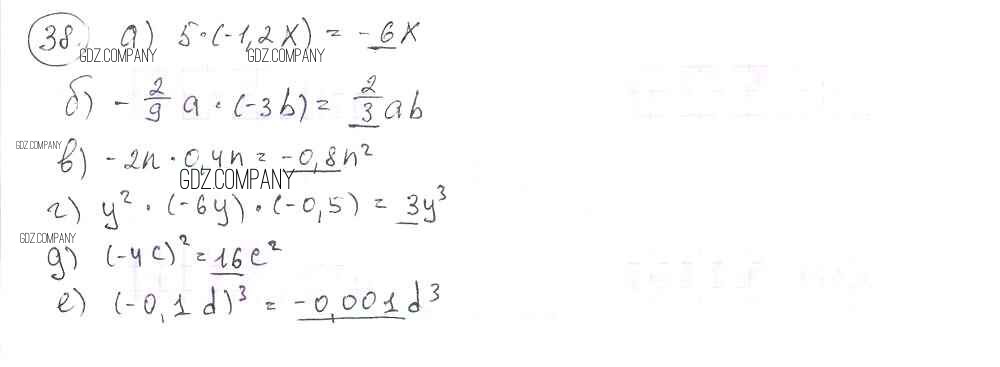 38. а) 5·(-1,2x) = -6x
GDZ.COMPANY GDZ.COMPANY
б) -2/9 a · (-3b) = 2/3 ab
GDZ.COMPANY
в) -2n · 0,4n = -0,8n²
GDZ.COMPANY
г) y² · (-6y) · (-0,5) = 3y³
GDZ.COMPANY
д) (-4c)² = 16c²
е) (-0,1d)³ = -0,001d³